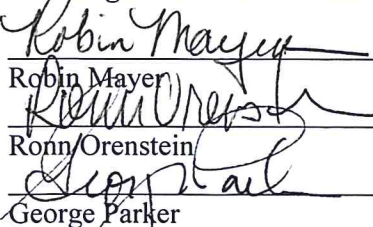 Robin Mayer
Robin Mayer
Ronn Orenstein
Ronn Orenstein
George Parker
George Parker